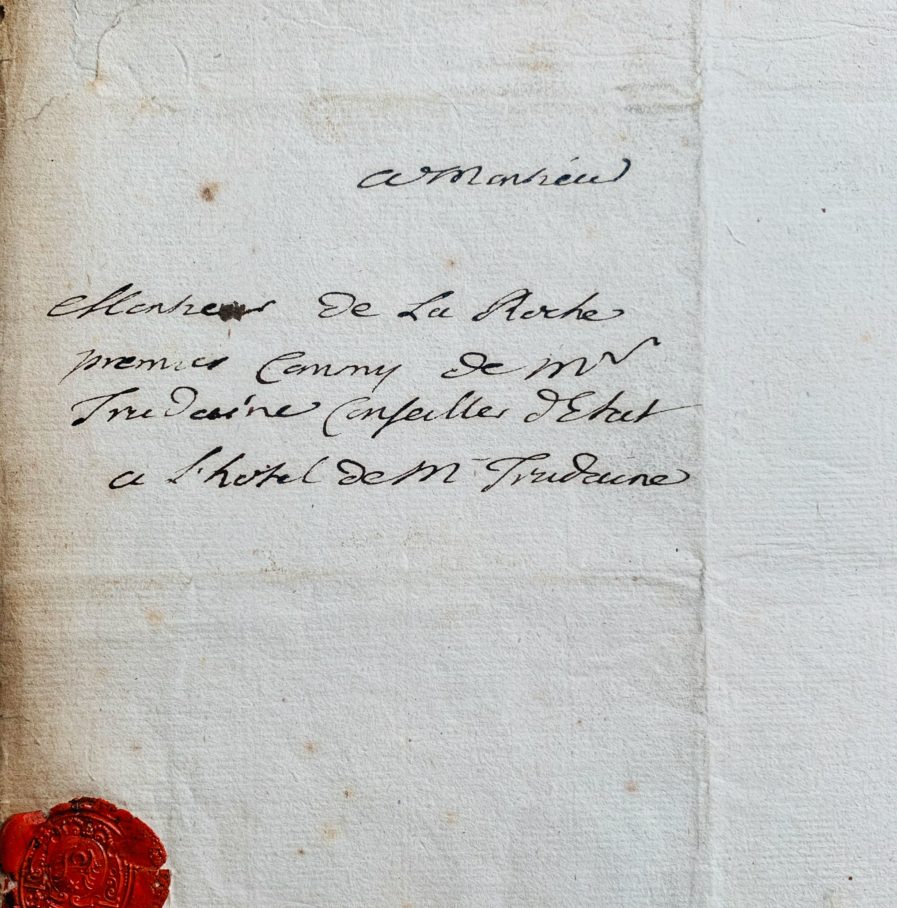 a Monsieur
Monsieur de La Roche
premier Commy de Mr
Trudaine Conseiller d'Etat
a L'hotel de Mr Trudaine